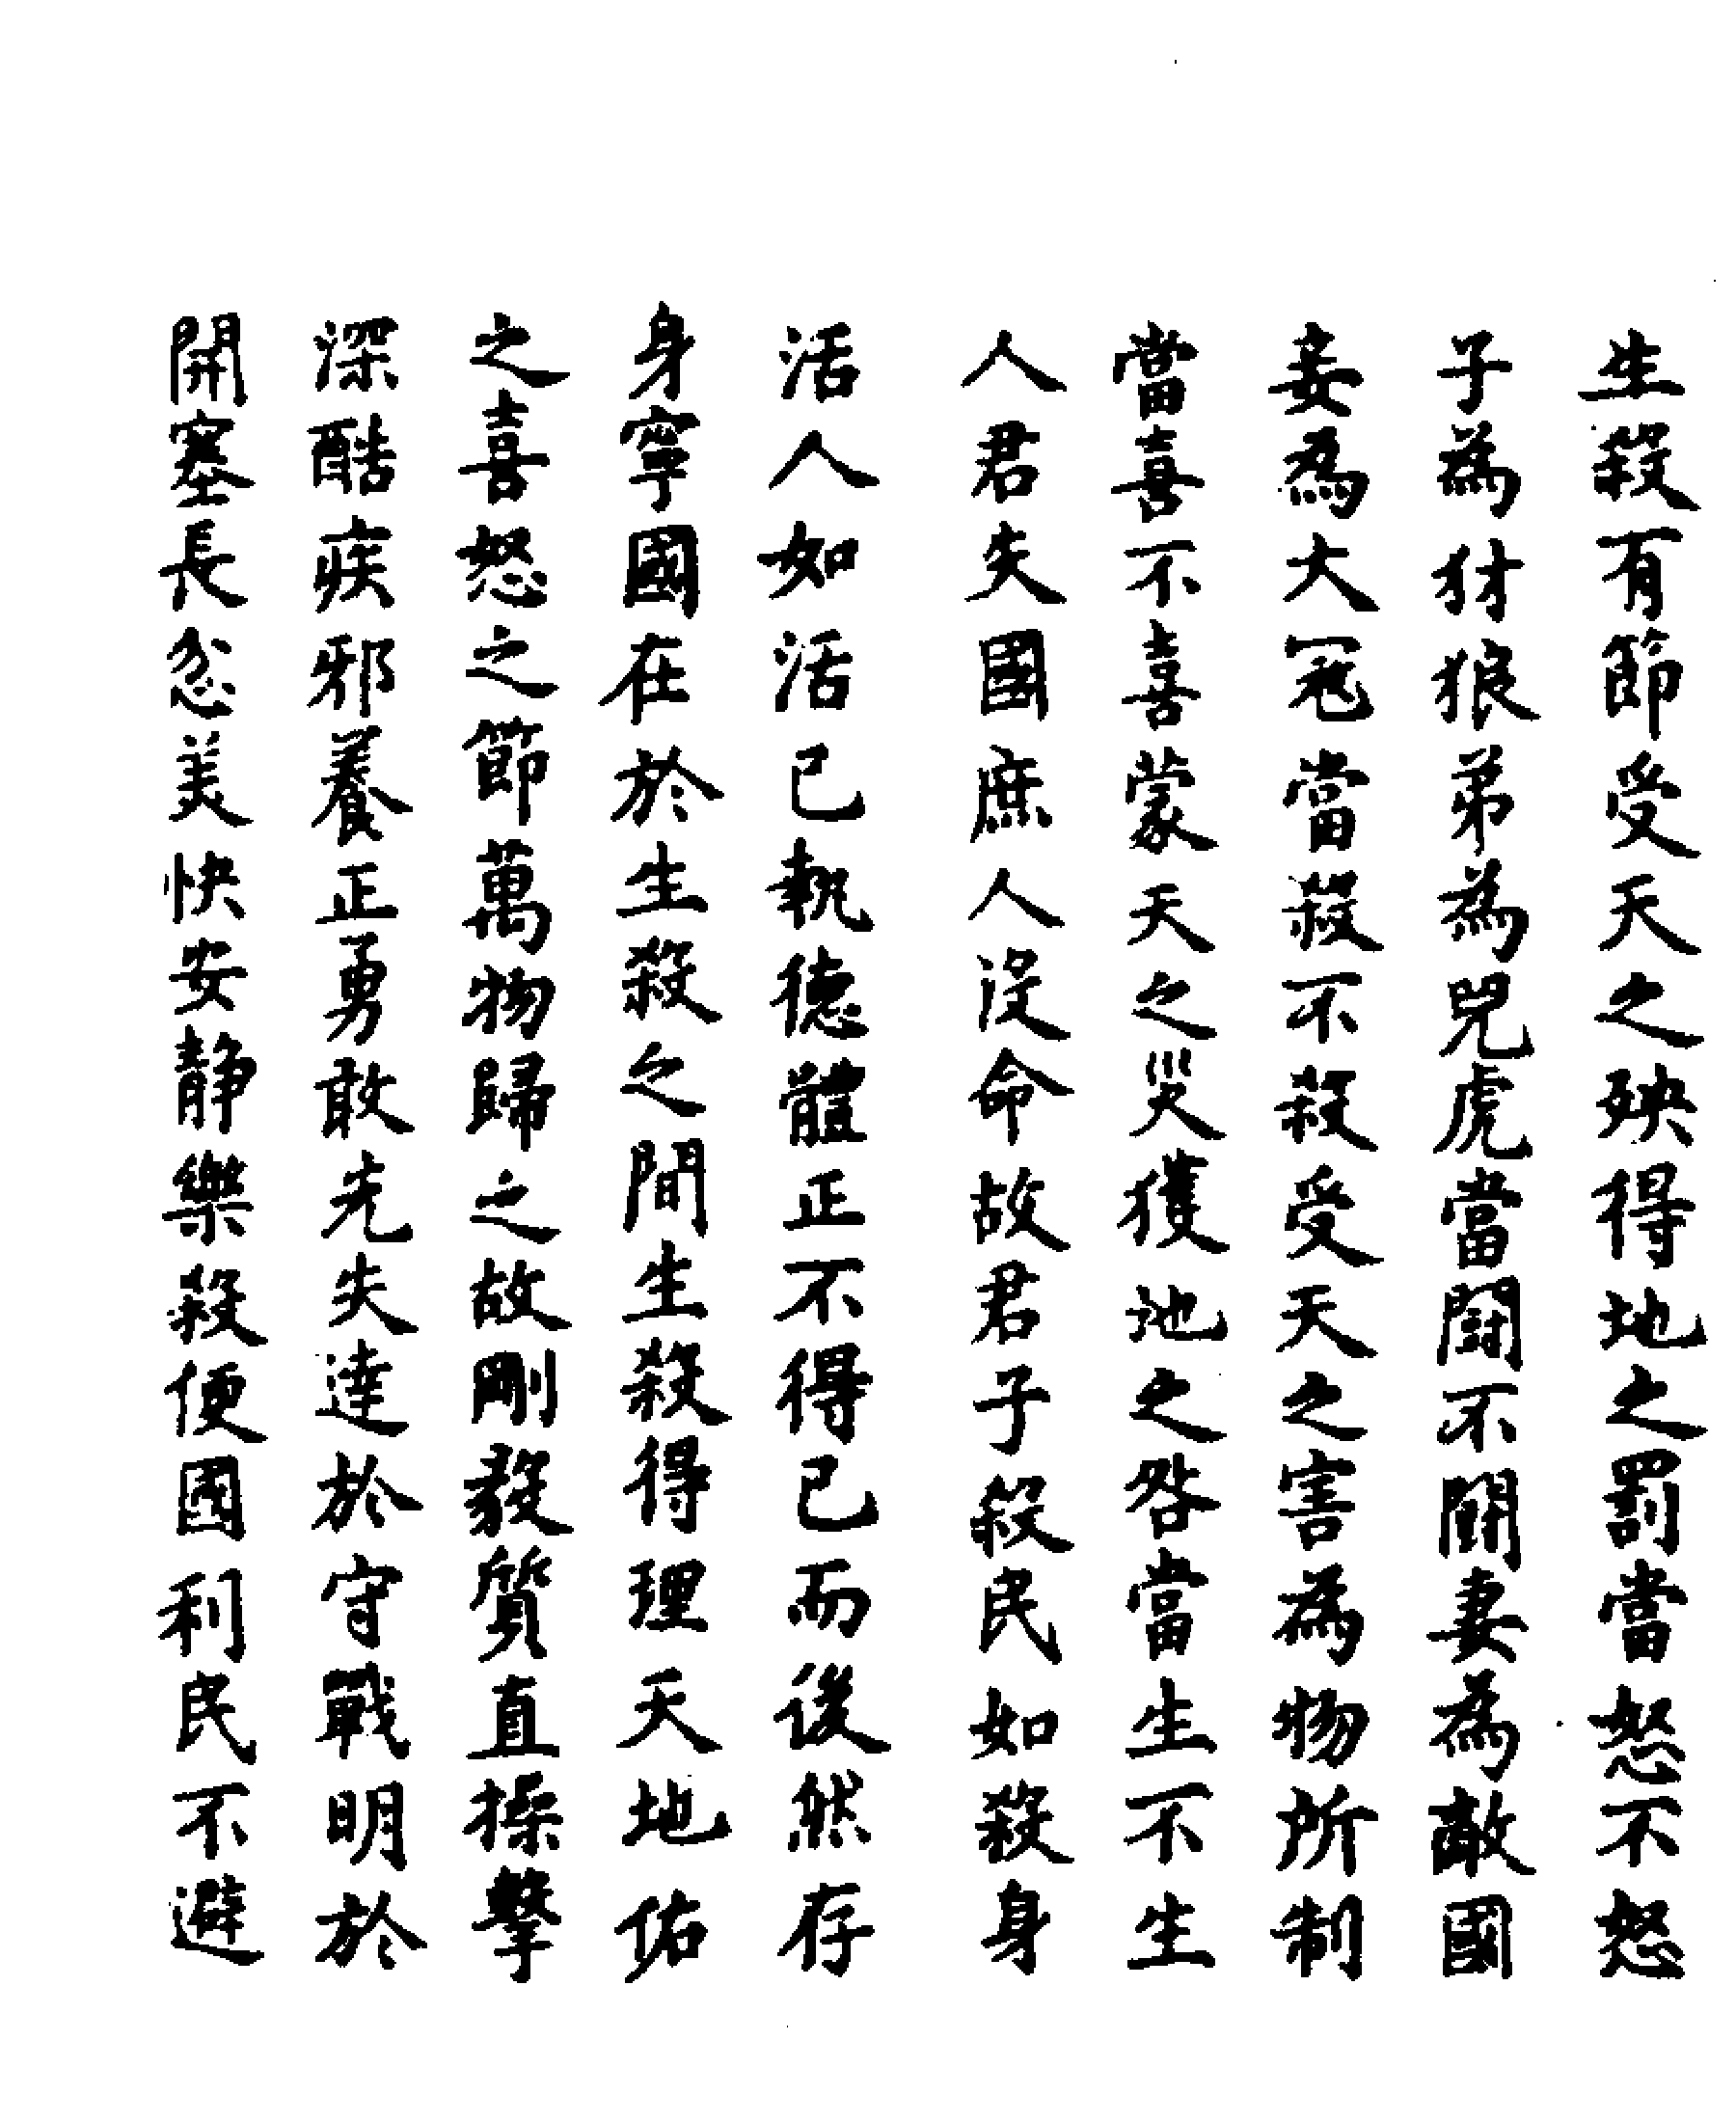 生殺有節受天之殃得地之罰當怒不怒
子為犲狼弟為兕虎當鬪不鬪妻為敵國
妾為大冦當殺不殺受天之害為物所制
當喜不喜蒙天之災獲地之咎當生不生
人君失國庶人没命故君子殺民如殺身
活人如活己執德體正不得已而後然存
身寧國在於生殺之間生殺得理天地佑
之喜怒之節萬物歸之故剛毅質直操擊
深酷疾邪養正勇敢先失達於守戰明於
開塞長忿美快安静樂殺便國利民不避